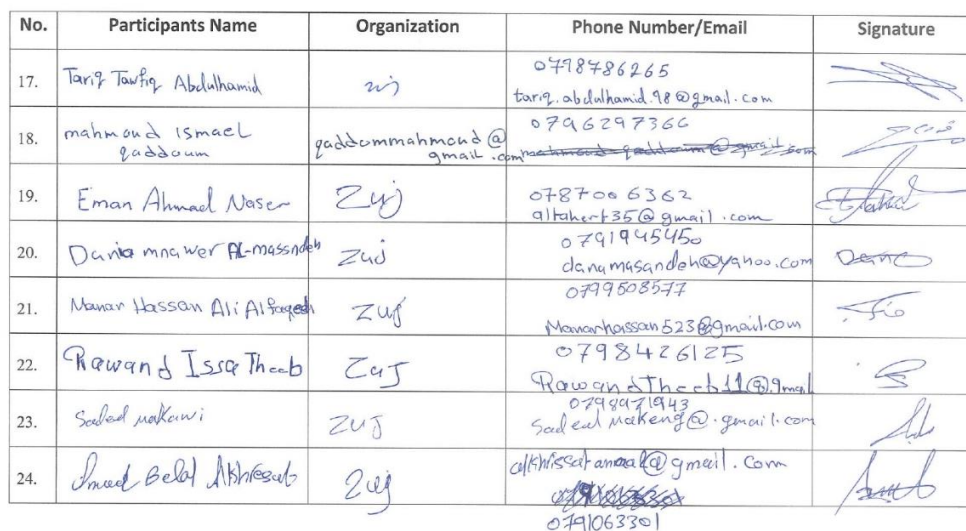 No. Participants Name Organization Phone Number/Email Signature
17. Tariq Tawfiq Abdulhamid 0798786265
tariq.abdulhamid.98@gmail.com
18. mahmoud Ismael qaddoum qaddommahmoud@gmail.com 0796297366
19. Eman Ahmad Naser Zuj 0787006362
altahert35@gmail.com
20. Dania mnawer Al-massndeh Zuj 0791945450
danamasandeh@yahoo.com
21. Manar Hassan Ali Alfaqeeh ZUJ 0799508577
Manarhassan523@gmail.com
22. Rawand Issa Theeb ZUJ 0798426125
RawandTheeb11@gmail
23. ZUJ 0798971943
24. Belal Zuj
0791063301